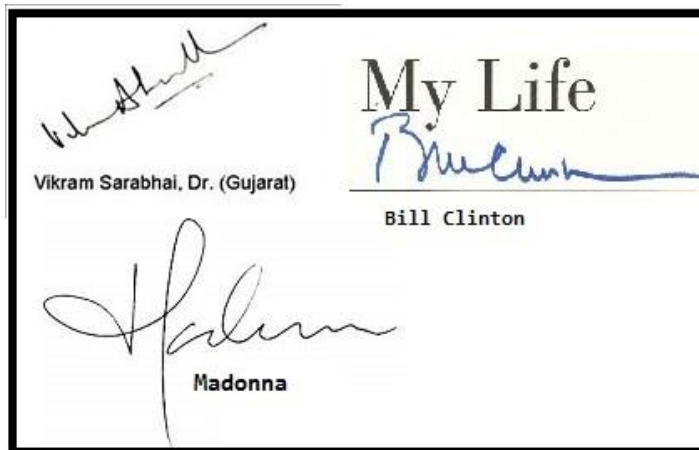 Vikram Sarabhai, Dr. (Gujarat)
My Life
Bill Clinton
Bill Clinton
Madonna